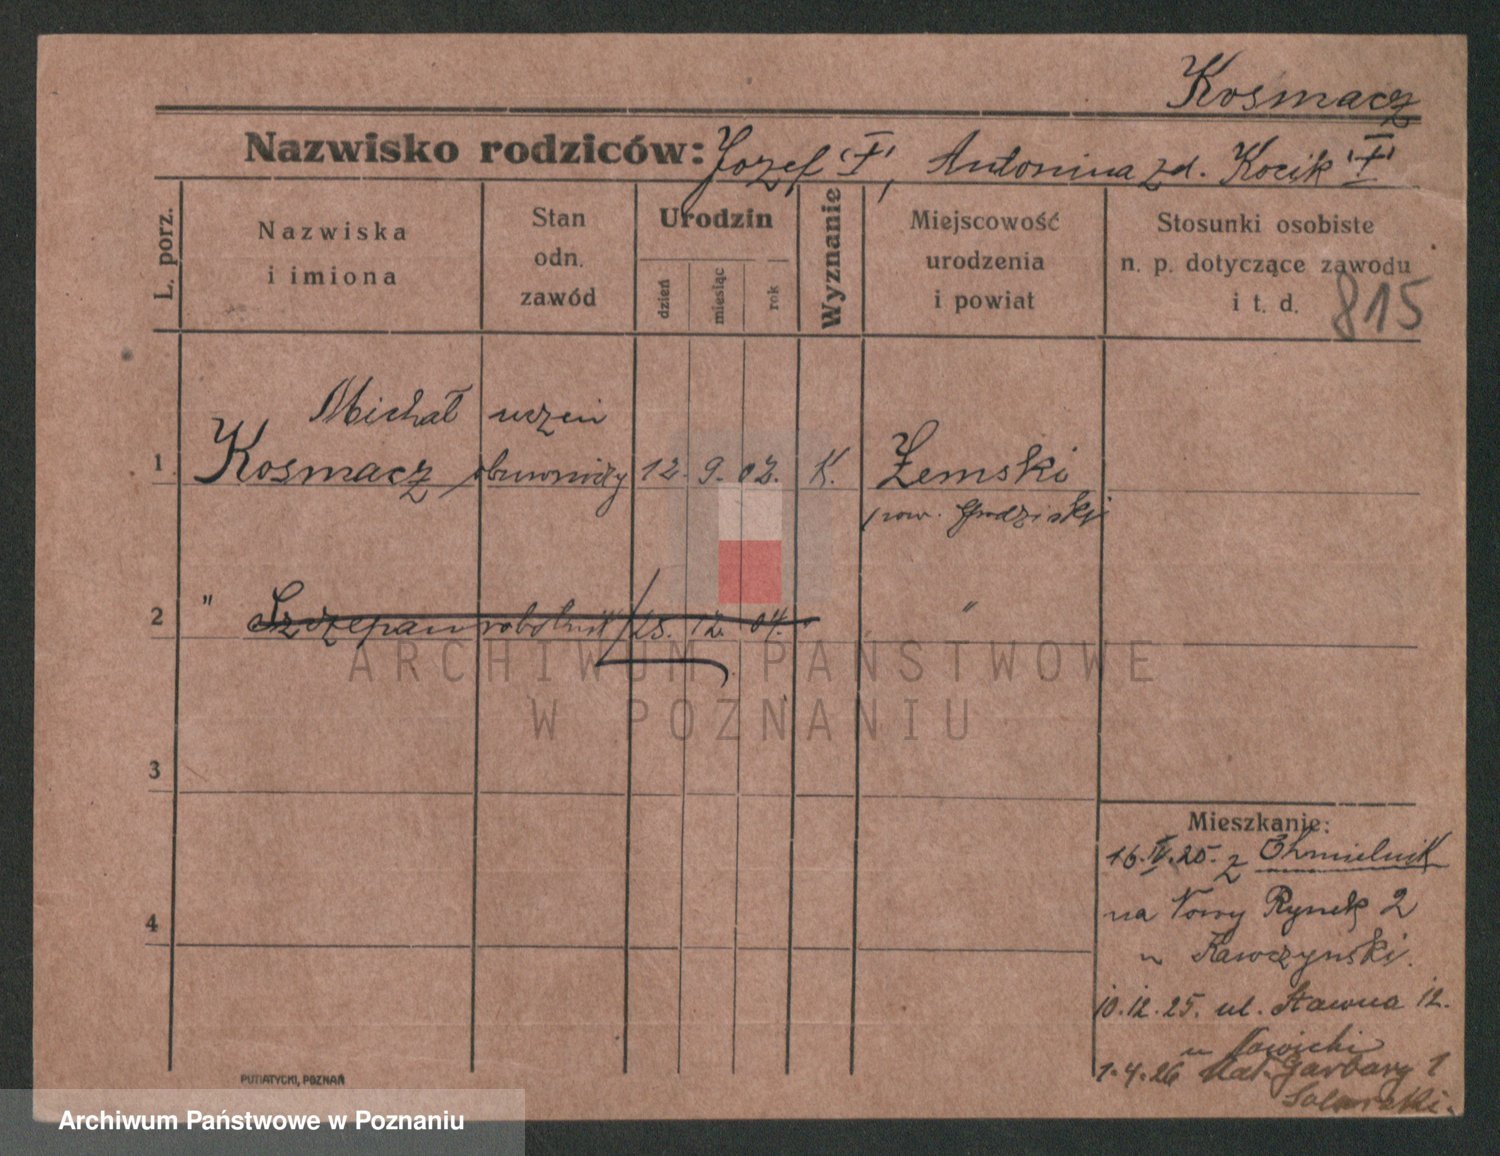 Kosmacz
Nazwisko rodziców: Jozef "†", Antonina zd. Kocik "†"
L. porz.
Nazwiska
i imiona
Stan
odn.
zawód
Urodzin
dzień
miesiąc
rok
Wyznanie
Miejscowość
urodzenia
i powiat
Stosunki osobiste
n. p. dotyczące zawodu
i t. d.
815
Michał uczeń
1 Kosmacz 12. 9. 02. K. Żemski
pow. Grodziski
2 " Szczepan robotnik 25. 12. 04. "
3
4
Mieszkanie:
16.IV.25. z Chmielnik
na Nowy Rynek 2
u Kawczyński.
10.12.25. ul. Stawna 12.
u Nowicki
1.4.26 Mał. Garbary 1
PUTIATYCKI, POZNAŃ
ARCHIWUM PAŃSTWOWE
W POZNANIU
Archiwum Państwowe w Poznaniu